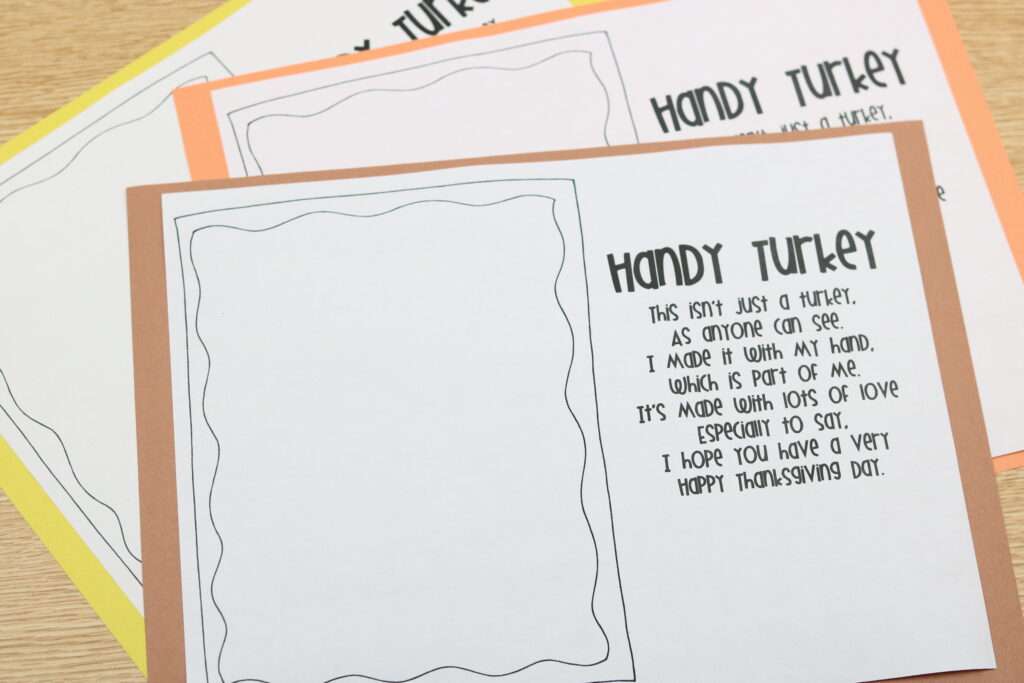 Turkey
Handy Turkey
just a turkey,
Handy Turkey
This isn't just a turkey,
As anyone can see.
I made it with my hand,
Which is part of me.
It's made with lots of love
Especially to say,
I hope you have a very
Happy Thanksgiving Day.